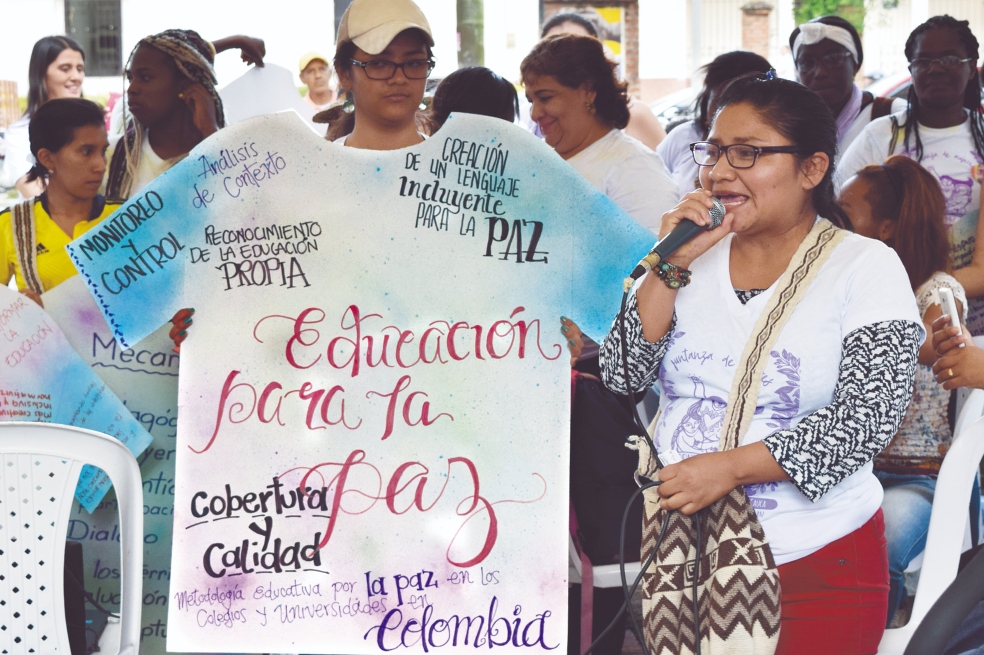 MONITOREO
Y
CONTROL
Análisis
de Contexto
RECONOCIMIENTO
DE LA EDUCACIÓN
PROPIA
CREACIÓN
DE UN LENGUAJE
incluyente
PARA LA
PAZ
Educación
para la
paz
Cobertura
y
Calidad
Metodología educativa por la paz en los
Colegios y Universidades en
Colombia
LA
EDUCACIÓN
juntanza de